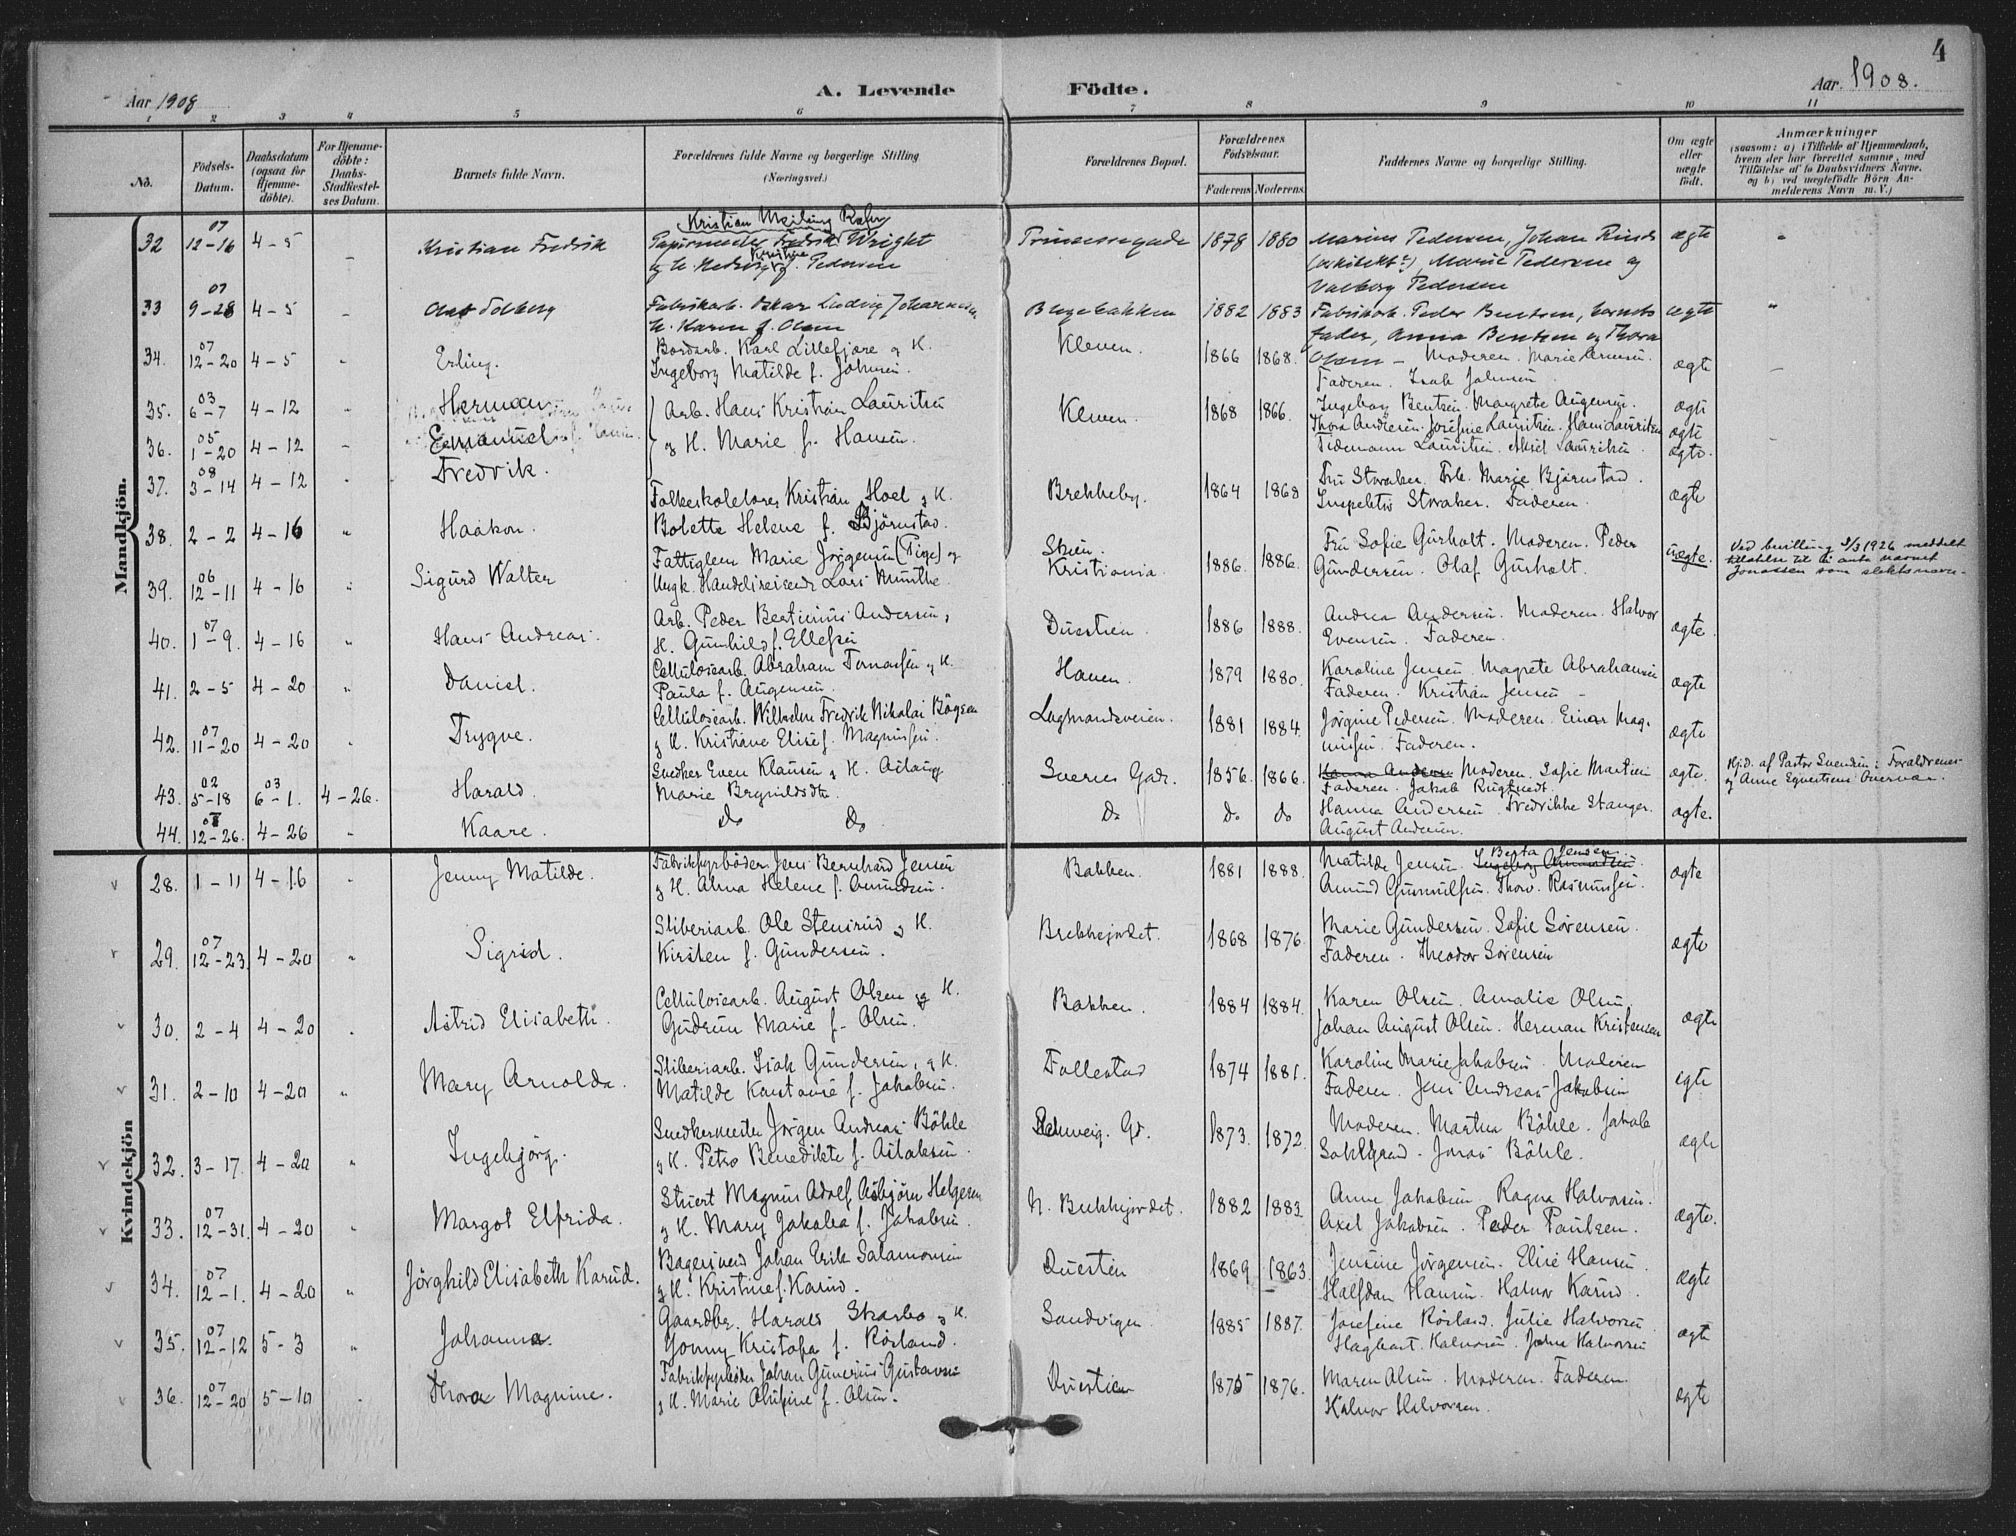 4
Aar 1908
A. Levende Födte.
Aar. 1908.
1 2 3 4 5 6 7 8 9 10 11
No.
Födsels-Datum.
Daabsdatum (ogsaa for Hjemme-döbte).
For Hjemme-döbte: Daabs-Stadfæstel-ses Datum.
Barnets fulde Navn.
Forældrenes fulde Navne og borgerlige Stilling. (Næringsvei.)
Forældrenes Bopæl.
Forældrenes Födselsaar.
Faderens Moderens.
Faddernes Navne og borgerlige Stilling.
Om ægte eller uægte födt.
Anmærkninger
(saasom: a) i Tilfælde af Hjemmedaab,
hvem der har forrettet samme, med
Tilföielse af to Daabsvidners Navne.
og b) ved uægtefödte Börn An-
melderens Navn m. V.)
Mandkjön.
32 07 12-16 4-5 Kristian Fredrik
Papirmester Fredrik Wright
Kristine
Pedersen
Prinsessegade 1878 1880 Marius Pedersen, Johan
Marie Pedersen og
Valborg Pedersen
ægte
33 07 9-28 4-5 Solberg
Fabrikarb. Oskar Ludvig Johannesen
H. Karen f. Olsen
Blegebakken 1882 1883 Fabrikarb. Peder Bentsen, barnets
fader, Anna Bentsen og Thora
Olsen
ægte
34. 07 12-20 4-5 " Erling.
Bordarb. Karl Lillefjære og H.
Ingeborg Matilde f. Johnsen.
Kleven. 1866 1868. Moderen. Marie
Faderen. Isak Johnsen
ægte
35. 03 6-7 4-12 " Herman
36. 05 1-20 4-12 Emanuel
37. 08 3-14 4-12 " Fredrik.
Arb. Hans Kristian Lauritsen
og H. Marie f. Hansen.
Kleven. 1868 1866. Ingeborg Bentsen. Margrete Augensen.
Thora Andresen. Josefine Lauritsen. Hans Lauritsen
Tidemann Lauritsen. Lauritsen.
ægte
ægte
ægte.
38. 2-2 4-16 " Haakon.
Folkeskolelærer Kristian Hoel og H.
Bolette Helene f. Bjørnstad.
Brekkeby. 1864 1868 Fru Storaker. Frk. Marie Bjørnstad.
Inspektør Storaker. Faderen
ægte
39. 06 12-11 4-16 " Sigurd Walter
Fattiglem Marie Jørgensen (Pige) og
Ungk. Handelsreisende Lars Munthe.
Skien. Kristiania. 1886. 1886. Fru Sofie Gurholt. Moderen. Peder
Gundersen. Olaf Gurholt.
uægte.
Ved bevilling 3/3 1926 meddelt
tilladelse til å anta navnet
Jonassen som slektsnavn.
40. 07 1-9. 4-16 " Hans Andreas.
Arb. Peder Bertinius Andersen,
H. Gunhild f. Ellefsen
Duestien. 1886 1888. Andrea Andersen. Moderen. Halvor
Evensen. Faderen.
ægte.
41. 2-5 4-20 " Daniel.
Cellulosearb. Abraham Tomassen og H.
Paula f. Augensen.
Haven. 1879 1880. Karoline Jensen. Magrete Abrahamsen
Faderen. Kristian Jensen
ægte
42. 07 11-20 4-20 Trygve.
Cellulosearb. Wilhelm Fredrik Nikolai Bögsen
og H. Kristiane Elise f. Magnussen.
Lagmandsveien. 1881 1884. Jørgine Pedersen. Moderen. Einar Mag-
nussen. Faderen.
ægte
43. 02 5-18 03 6-1. 4-26. Harald.
Snedker Even Klausen og H. Aslaug
Marie Brynildsdtr.
Sveres Gade. 1856. 1866. Hanna Andersen Moderen. Sofie Martsen
Faderen. Jakob
ægte.
Hjd. af Pastor Svendsen: Foraldrenes
og Anne
44. 12-26. 4-26 Kaare.
Do Do Do Do Do Hanna Andersen. Fredrikke Stanger.
August Andersen.
ægte.
Kvindekjön
28. 1-11 4-16 " Jenny Matilde.
Fabrikfyrböder Jens Bernhard Jensen
og H. Anna Helene f. Amundsen.
Bakken. 1881 1888. Matilde Jensen. Berta Jensen
Ingeborg Amundsen.
Amund Gunnulfsen. Thorv. Rasmussen.
ægte
29. 07 12-23. 4-20 " Sigrid.
Sliberiarb. Ole Stensrud og H.
Kirsten f. Gundersen.
Brekkejordet. 1868 1876. Marie Gundersen. Sofie Sørensen.
Faderen. Theodor Sørensen
ægte
30. 2-4 4-20 " Astrid Elisabeth.
Cellulosearb. August Olsen og H.
Gudrun Marie f. Olsen.
Bakken. 1884 1884. Karen Olsen. Amalie Olsen.
Johan August Olsen. Herman Kristensen
ægte
31. 2-10 4-20 " Mary Arnolda.
Sliberiarb. Isak Gundersen, og H.
Matilde Konstanse f. Jakobsen.
Follestad 1874 1881. Karoline Marie Jakobsen. Moderen
Faderen. Jens Andreas Jakobsen
ægte
32. 3-17. 4-20 " Ingebjörg.
Snedkermester Jörgen Andreas Böhle
og H. Petra Benedikte f. Aslaksen.
Gd. 1873. 1872. Moderen. Martha Böhle. Jakob
Jonas Böhle.
ægte
33. 07 12-31. 4-20 " Margot Elfrida.
Stuert Magnus Adolf Asbjörn Helgesen
og H. Mary Jakoba f. Jakobsen.
N. Brekkejordet. 1882 1883. Anne Jakobsen. Ragna Halvorsen.
Axel Jakobsen. Peder Paulsen.
ægte.
34. 07 12-1. 4-20 " Jörghild Elisabeth Karud.
Bagersvend Johan Erik Salamonsen
og H. Kristine f. Karud.
Duestien 1869 1863. Jensine Jörgensen. Elise Hansen.
Halfdan Hansen. Halvor Karud.
ægte
35. 07 12-12 5-3 " Johanna.
Gaardbr. Harald Skarbo og H.
Gonny Kristofa f. Rörland.
Sandvigen 1885 1887. Josefine Rörland. Julie Halvorsen.
Hagbart Halvorsen. John Halvorsen
ægte
36. 07 12-20 5-10 Thora Magnine.
Fabrikfyrböder Johan Gunerius Gustavsen
og H. Marie f. Olsen.
Duestien 1875 1876. Maren Olsen. Moderen. Faderen.
Halvor Halvorsen.
ægte